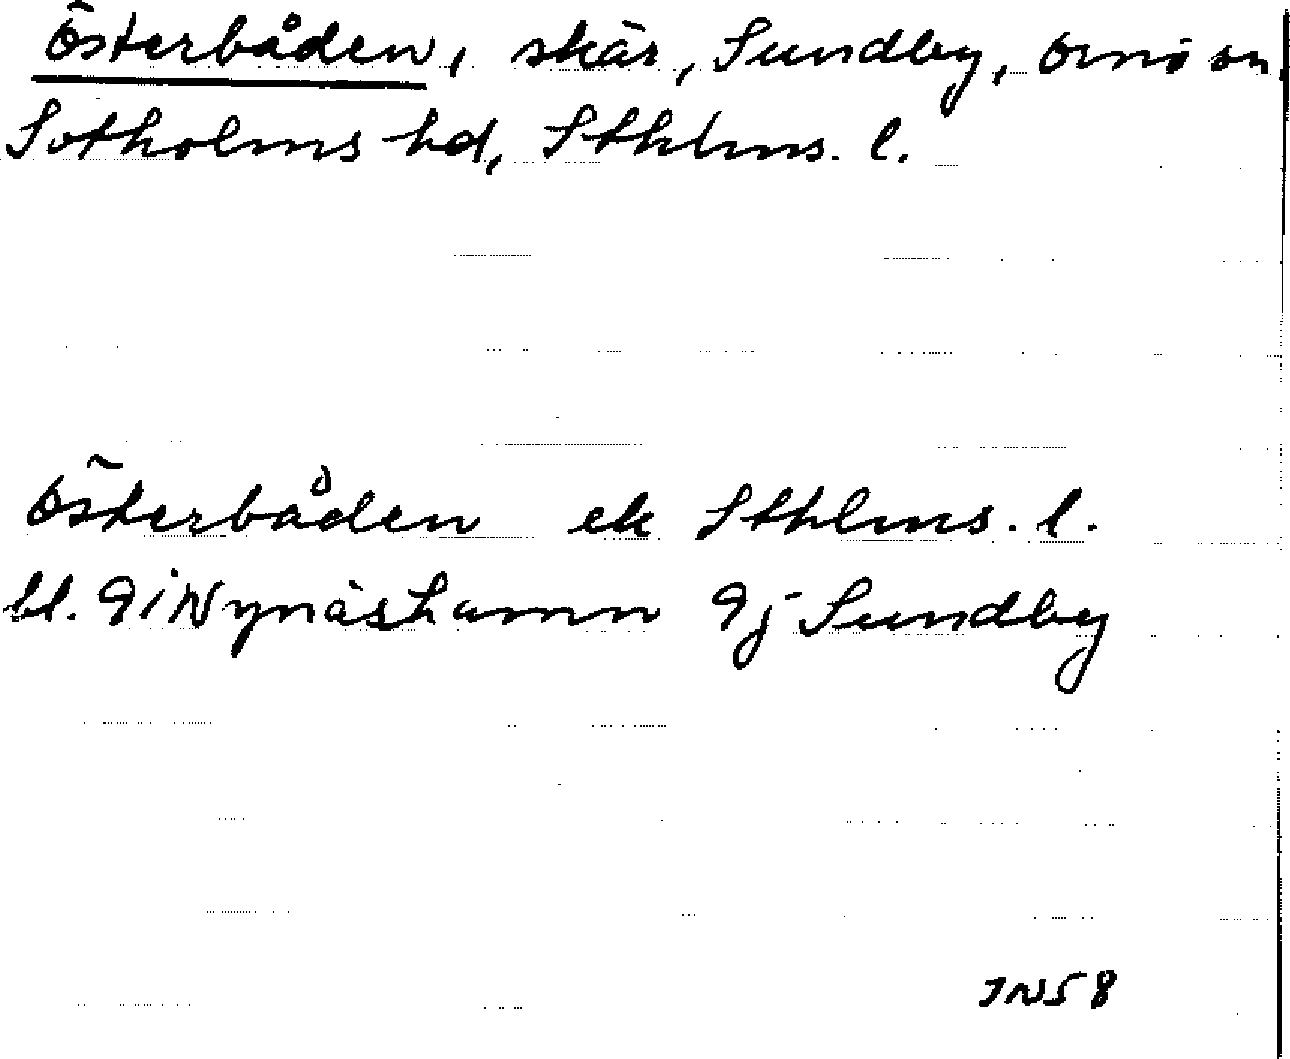 Österbåden, skär, Sundby, Ornö sn,
Sotholms hd, Sthlms. l.
Österbåden ek Sthlms. l.
bl. 9i Nynäshamn 9j Sundby
JN58